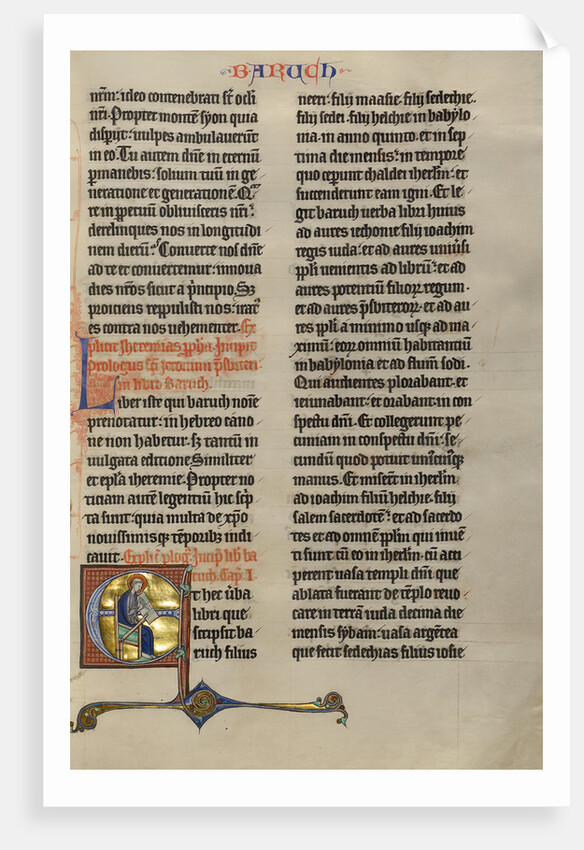 BARUCH
nr̄m: ideo contenebrati st̄ oc̄li
nr̄i. Propter montē syon quia
disp̄ijt: vulpes ambulauerūt
in eo. Tu autem dn̄e in eternū
permanebis: solium tuū in ge
neratione et generationē. Qua
re in ꝑpetuū obliuisceris nr̄i:
derelinques nos in longitudi
nem dierū: Conuerte nos dn̄e
ad te et conuertemur: innoua
dies nr̄os sicut a p̄ncipio. Sꝫ
proiciens reppulisti nos: irat9
es contra nos uehementer. Ex
plicit iheremias ꝓph̄a. Incipit
prologus
in libro Baruch.
Liber iste qui baruch noīe
prenotatur: in hebreo cano
ne non habetur. sꝫ tantū in
uulgata editione. Similiter
et ep̄la iheremie. Propter no
ticiam autē legentium hic sc̄p
ta sunt: quia multa de xp̄o
nouissimisqꝫ tēporibꝫ indi
cauit. Expł plog9. Incip̄ lib̄ ba
ruch. Cap̄. I
Et hec ūba
libri que
scripsit ba
ruch filius
neeri. filij maasie. filij sedechie.
filij sedei. filij helchie in babylo
nia. in anno quinto. et in sep
tima die mensis: in tempore
quo ceperunt chaldei ihrlm̄: et
succenderunt eam igni. Et le
git baruch uerba libri huius
ad aures iechonie filij ioachim
regis iuda: et ad aures uniūsi
pp̄li uenientis ad librū: et ad
aures potentiū filioꝝ regum.
et ad aures p̄sbiteroꝝ. et ad au
res pp̄li a minimo usqꝫ ad ma
ximū: eoꝝ omniū habitantiū
in babylonia et ad fluuiū sodi.
Qui audientes plorabant. et
ieiunabant: et orabant in con
spectu dn̄i. Et collegerunt pe
cuniam in conspectu dn̄i: se
cundū quod potuit uni9cui9qꝫ
manus. Et miserūt in ihrlm̄
ad ioachim filiū helchie. filij
salem sacerdotē: et ad sacerdo
tes et ad omnem pp̄lm qui inuē
ti sunt cū eo in ihrlm̄: cū acci
perent uasa templi dn̄i que
ablata fuerant de tēplo reuo
care in terrā iuda decima die
mensis syban: uasa argētea
que fecit sedechias filius iosie